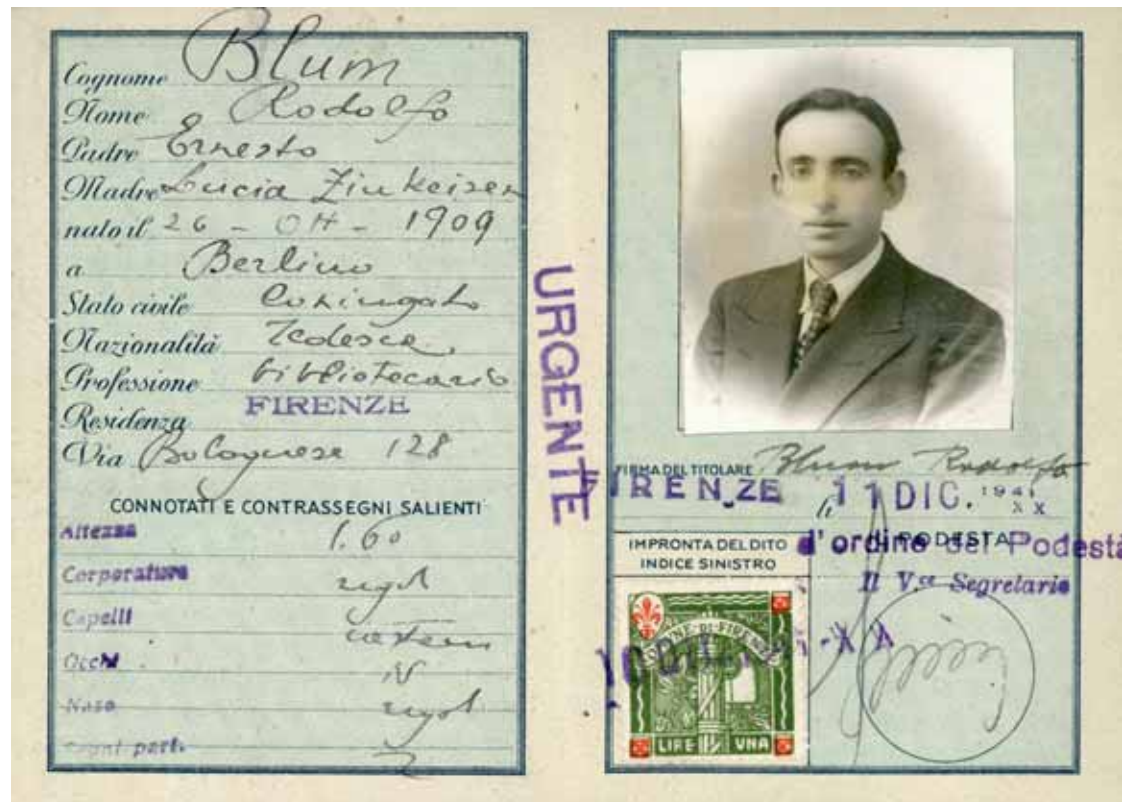 Cognome Blum
Nome Rodolfo
Padre Ernesto
Madre Lucia Zinkeisen
nato il 26 - Ott - 1909
a Berlino
Stato civile Coniugato
Nazionalità Tedesca
Professione bibliotecario
Residenza FIRENZE
Via Bolognese 128
CONNOTATI E CONTRASSEGNI SALIENTI
Altezza 1.60
Corporatura regol
Capelli castani
Occhi
Naso regol
Segni part.
URGENTE
FIRMA DEL TITOLARE Blum Rodolfo
FIRENZE, li 11 DIC. 1941 XX
IL PODESTA
d'ordine del Podestà
Il Vce Segretario
IMPRONTA DEL DITO
INDICE SINISTRO
COMUNE·DI·FIRENZE
LIRE VNA